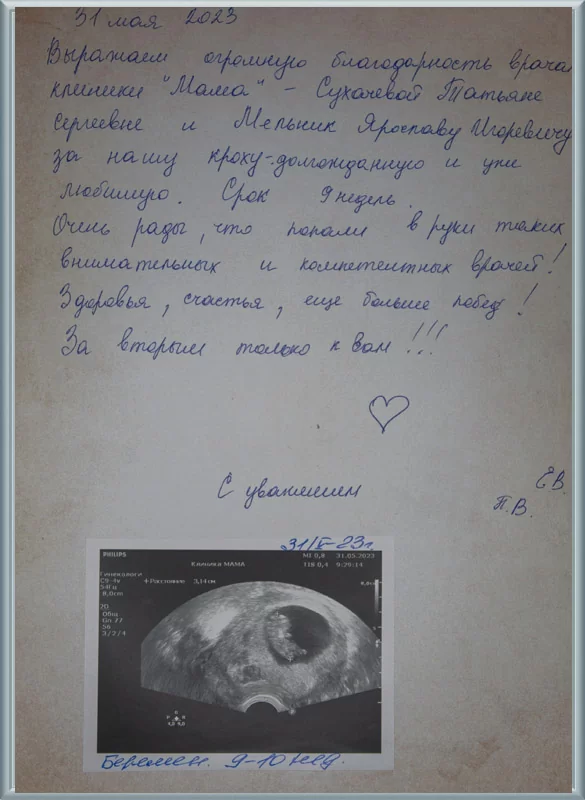 31 мая 2023
Выражаем огромную благодарность врачам
клиники "Мама" - Сухачевой Татьяне
Сергеевне и Мельник Ярославу Игоревичу
за нашу кроху-долгожданную и уже
любимую. Срок 9 недель.
Очень рады, что попали в руки таких
внимательных и компетентных врачей!
Здоровья, счастья, еще больше побед!
За вторым только к Вам!!!
С уважением
Е.В.
П.В.
31/V-23г.
PHILIPS
Клиника МАМА
MI 0,8 31.05.2023
TIS 0,4 9:29:14
Гинекологи
C9-4v
54Гц
8,0cm
4-Расстояние 3,14cm
2D
Общ
Gn 77
56
3/2/4
Беремен. 9-10 нед.